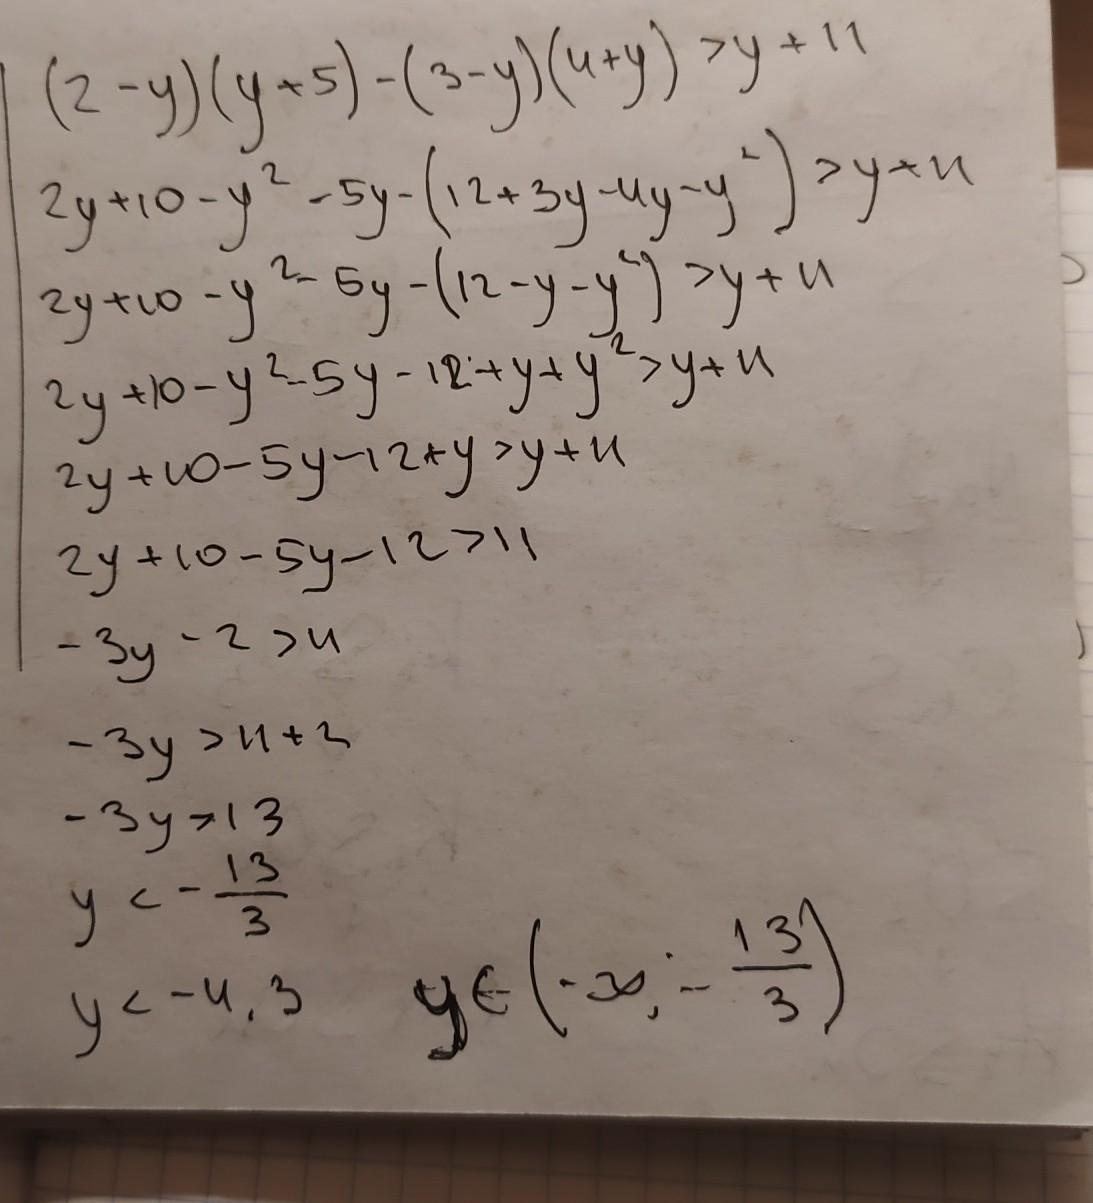 (2-y)(y+5)-(3-y)(4+y)>y+11
2y+10-y²-5y-(12+3y-4y-y²)>y+11
2y+10-y²-5y-(12-y-y²)>y+11
2y+10-y²-5y-12+y+y²>y+11
2y+10-5y-12+y>y+11
2y+10-5y-12>11
-3y-2>11
-3y>11+2
-3y>13
y<-13/3
y<-4,3 y∈(-∞;-13/3)